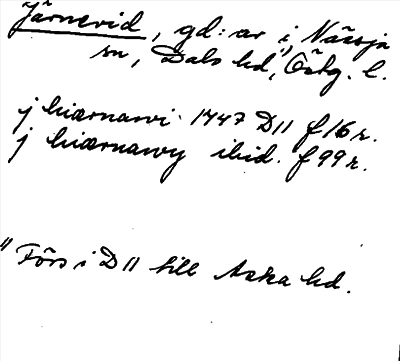 Järnevid, gd:ar i, Nässja
sn, Dals hd,¹⁾ Östg. l.
j hiærnawi 1447 D11 f 16 r.
j hiærnawy ibid. f 99 r.
¹⁾ Förs i D 11 till Aska hd.